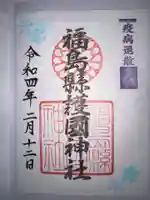 疫病退散
福島縣護國神社
令和四年二月十二日